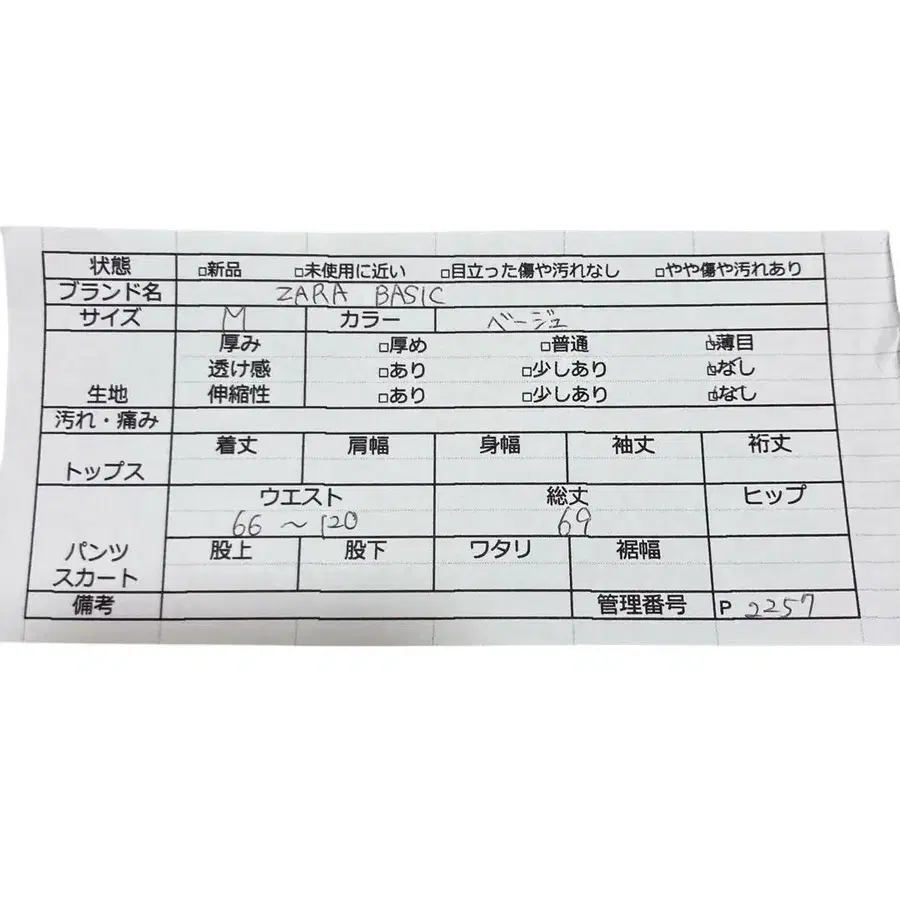 状態 □新品 □未使用に近い □目立った傷や汚れなし □やや傷や汚れあり
ブランド名 ZARA BASIC
サイズ M カラー ベージュ
厚み □厚め □普通 ☑薄目
透け感 □あり □少しあり ☑なし
生地 伸縮性 □あり □少しあり ☑なし
汚れ・痛み
着丈 肩幅 身幅 袖丈 裄丈
トップス
ウエスト 総丈 ヒップ
66 ~ 120 69
パンツ 股上 股下 ワタリ 裾幅
スカート
備考 管理番号 P 2257